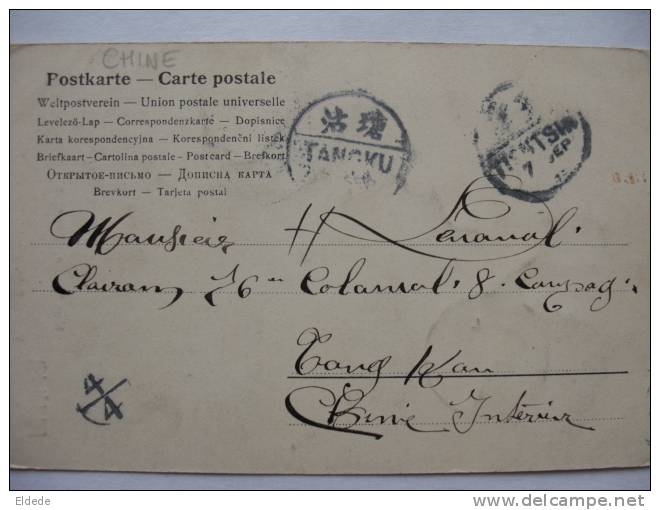 CHINE
Postkarte — Carte postale
Weltpostverein — Union postale universelle
Levelező-Lap — Correspondenzkarte — Dopisnice
Karta korespondencyjna — Korespondenční lístek
Briefkaart — Cartolina postale — Postcard — Brefkort
Открытое-письмо — Дописна карта
Brevkort — Tarjeta postal
沽塘
TANGKU
TIENTSIN
7 SEP
Monsieur H
Clairon 16 Colonial 8 Compag
Tong Kou
Chine Intérieur
4/4
Eldede
delcampe.net